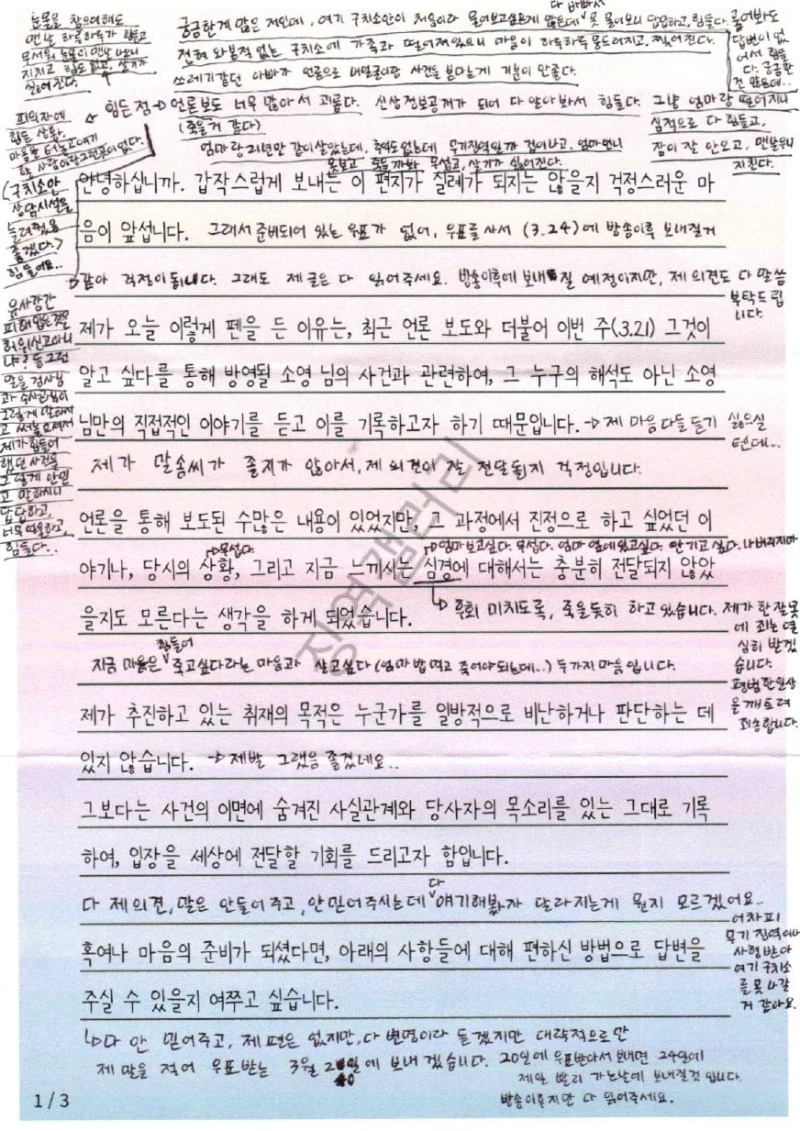 눈물을 참으려해도
맨날 하루하루가 힘들고
무서워 눈물이 맨날 나오니
지치고 힘도 없고, 살기가
싫어진다.
다 바빠서
궁금한게 많은 저인데, 여기 구치소안이 처음이라 물어보고싶은게 많은데 못 물어보니 답답하고, 힘들다. 물어봐도
답변이 없
어서 힘들
다. 궁금한
건 많은데...
전혀 와본적 없는 구치소에 가족과 떨어져있으니 마음이 하루하루 무드러지고, 찢어진다.
쓰레기같던 아빠가 언론으로 내얼굴이랑 사건을 본다는게 기분이 안좋다.
피의자에
힘든 상황,
마음을 터놓고얘기
할 사람이라그런것이없다.
(구치소안
상담시설을
늘려줬음
좋겠다.)
힘들어요..
힘든 점→ 언론보도 너무 많아서 괴롭다. 신상정보공개가 되어 다 알아봐서 힘들다. 그냥 엄마랑 떨어지니
(죽을거 같다)
심적으로 다 힘들고,
잠이 잘 안오고, 맨날우니
지친다.
엄마랑 21년만 같이살았는데, 추억도없는데 무기징역일까 겁이나고, 엄마언니
못보고 죽을까봐 무섭고, 살기가 싫어진다.
안녕하십니까. 갑작스럽게 보내는 이 편지가 실례가 되지는 않을지 걱정스러운 마
음이 앞섭니다. 그래서 준비되어 있는 우표가 없어, 우표를 사서 (3.24)에 방송이후 보내질거
같아 걱정이 됩니다. 그래도 제 글은 다 읽어주세요. 방송이후에 보내질 예정이지만, 제 의견도 다 말씀
부탁드립
니다.
유사강간
피해입은것을
허위신고아니
냐? 등 그런
말을 검사님
과 수사관님이
그렇게 말하시
고 써놓으셔서
제가 힘들어
했던 사건을
그렇게 안믿
고 말하시니
답답하고,
너무억울하고,
힘들다..
제가 오늘 이렇게 펜을 든 이유는, 최근 언론 보도와 더불어 이번 주(3.21) 그것이
알고 싶다를 통해 방영될 소영 님의 사건과 관련하여, 그 누구의 해석도 아닌 소영
님만의 직접적인 이야기를 듣고 이를 기록하고자 하기 때문입니다. → 제 마음다들 듣기 싫으실
텐데...
제가 말솜씨가 좋지가 않아서, 제 의견이 잘 전달될지 걱정입니다.
언론을 통해 보도된 수많은 내용이 있었지만, 그 과정에서 진정으로 하고 싶었던 이
→무섭다.
→엄마보고싶다. 무섭다. 엄마 옆에있고싶다. 안기고싶다. 나버리지마
야기나, 당시의 상황, 그리고 지금 느끼시는 심경에 대해서는 충분히 전달되지 않았
을지도 모른다는 생각을 하게 되었습니다.
↳ 후회 미치도록, 죽을듯히 하고있습니다. 제가 한 잘못
에 죄는 열
심히 받겠
습니다.
평범한일상
을 깨트려
죄송합니다.
힘들어
지금 마음은 죽고싶다라는 마음과 살고싶다(엄마 밥먹고 죽어야되는데..) 두가지 마음입니다.
제가 추진하고 있는 취재의 목적은 누군가를 일방적으로 비난하거나 판단하는 데
있지 않습니다. → 제발 그랬음 좋겠네요..
그보다는 사건의 이면에 숨겨진 사실관계와 당사자의 목소리를 있는 그대로 기록
하여, 입장을 세상에 전달할 기회를 드리고자 함입니다.
다
다 제의견, 말은 안들어주고, 안믿어주시는데 얘기해봤자 달라지는게 뭔지 모르겠어요..
어차피
무기징역이나
사형받아
여기 구치소
를 못 나갈
거 같아요.
혹여나 마음의 준비가 되셨다면, 아래의 사항들에 대해 편하신 방법으로 답변을
주실 수 있을지 여쭈고 싶습니다.
↳다 안 믿어주고, 제 편은 없지만, 다 변명이라 듣겠지만 대략적으로만
제 말을 적어 우표받는 3월 20일에 보내겠습니다. 20일에 우표받아서 보내면 24일에
제일 빨리 가는날에 보내질것 입니다.
방송이후지만 다 읽어주세요.
1 / 3
징역갤러리